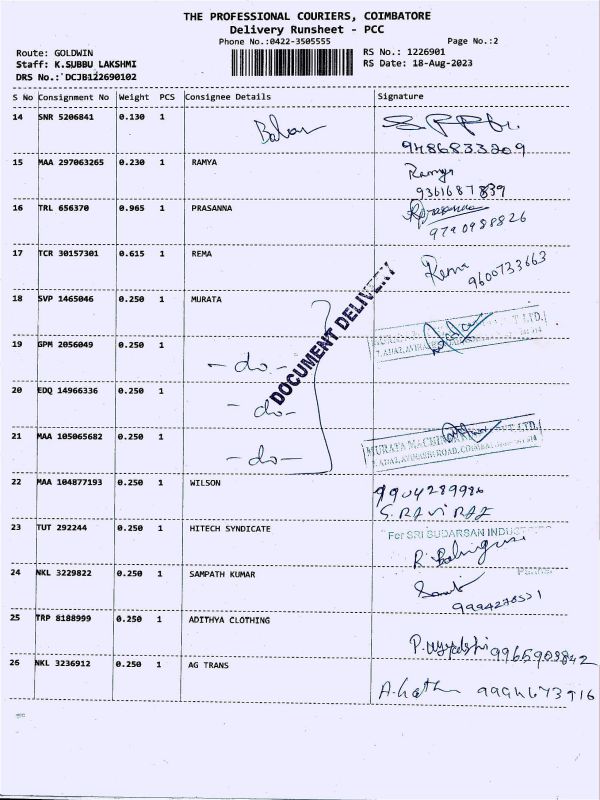 THE PROFESSIONAL COURIERS, COIMBATORE
Delivery Runsheet - PCC
Phone No.:0422-3505555
Page No.:2
Route: GOLDWIN
RS No.: 1226901
Staff: K.SUBBU LAKSHMI
RS Date: 18-Aug-2023
DRS No.: DCJB122690102
S No Consignment No Weight PCS Consignee Details Signature
14 SNR 5206841 0.130 1
9486833209
15 MAA 297063265 0.230 1 RAMYA Ramya
9361687839
16 TRL 656370 0.965 1 PRASANNA
9790988826
17 TCR 30157301 0.615 1 REMA Rema 9600733663
18 SVP 1465046 0.250 1 MURATA
DOCUMENT DELIVERY
19 GPM 2056049 0.250 1 -do-
20 EDQ 14966336 0.250 1 -do-
21 MAA 105065682 0.250 1 -do-
MURATA
22 MAA 104877193 0.250 1 WILSON 9904289986
S. RAVI RAJ
23 TUT 292244 0.250 1 HITECH SYNDICATE For SRI SUDARSAN
24 NKL 3229822 0.250 1 SAMPATH KUMAR
25 TRP 8188999 0.250 1 ADITHYA CLOTHING
9965909842
26 NKL 3236912 0.250 1 AG TRANS